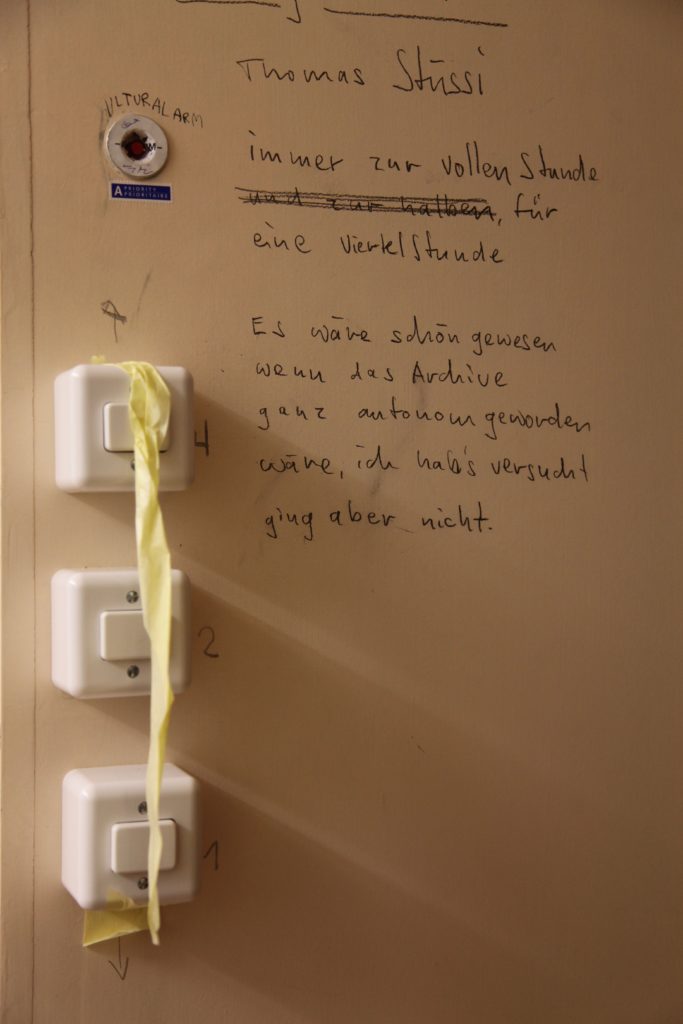 Thomas Stüssi
ULTURALARM
A PRIORITY
PRIORITAIRE
immer zur vollen Stunde
und zur halben, für
eine Viertelstunde
Es wäre schön gewesen
wenn das Archive
ganz autonom geworden
wäre, ich hab's versucht
ging aber nicht.
4
2
1